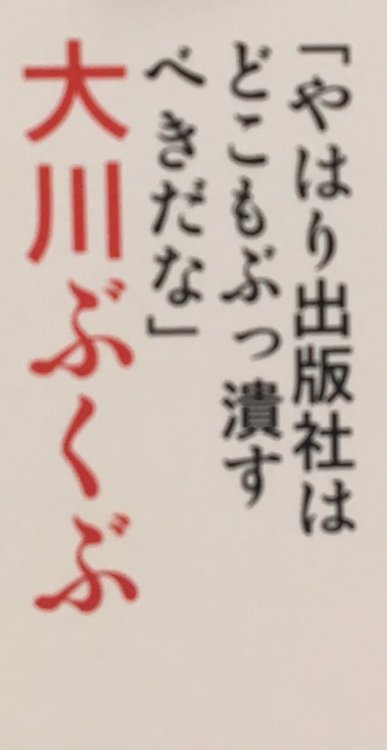 「やはり出版社は
どこもぶっ潰す
べきだな」
大川ぶくぶ